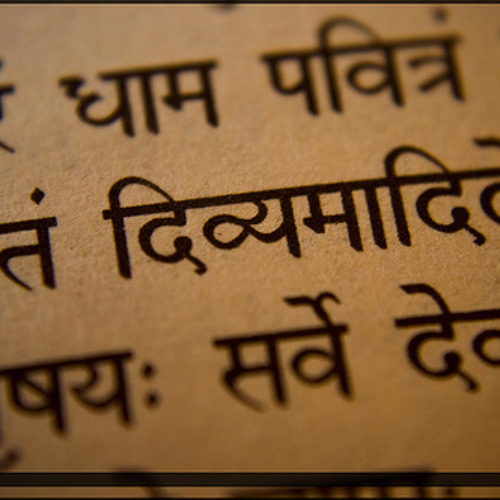 धाम पवित्रं
तं दिव्यमादिदे
षयः सर्वे देव